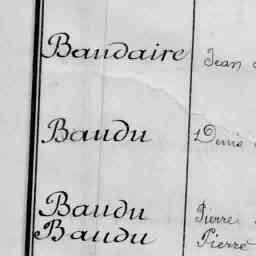 Baudaire Jean
Baudu Denis
Baudu Pierre
Baudu Pierre